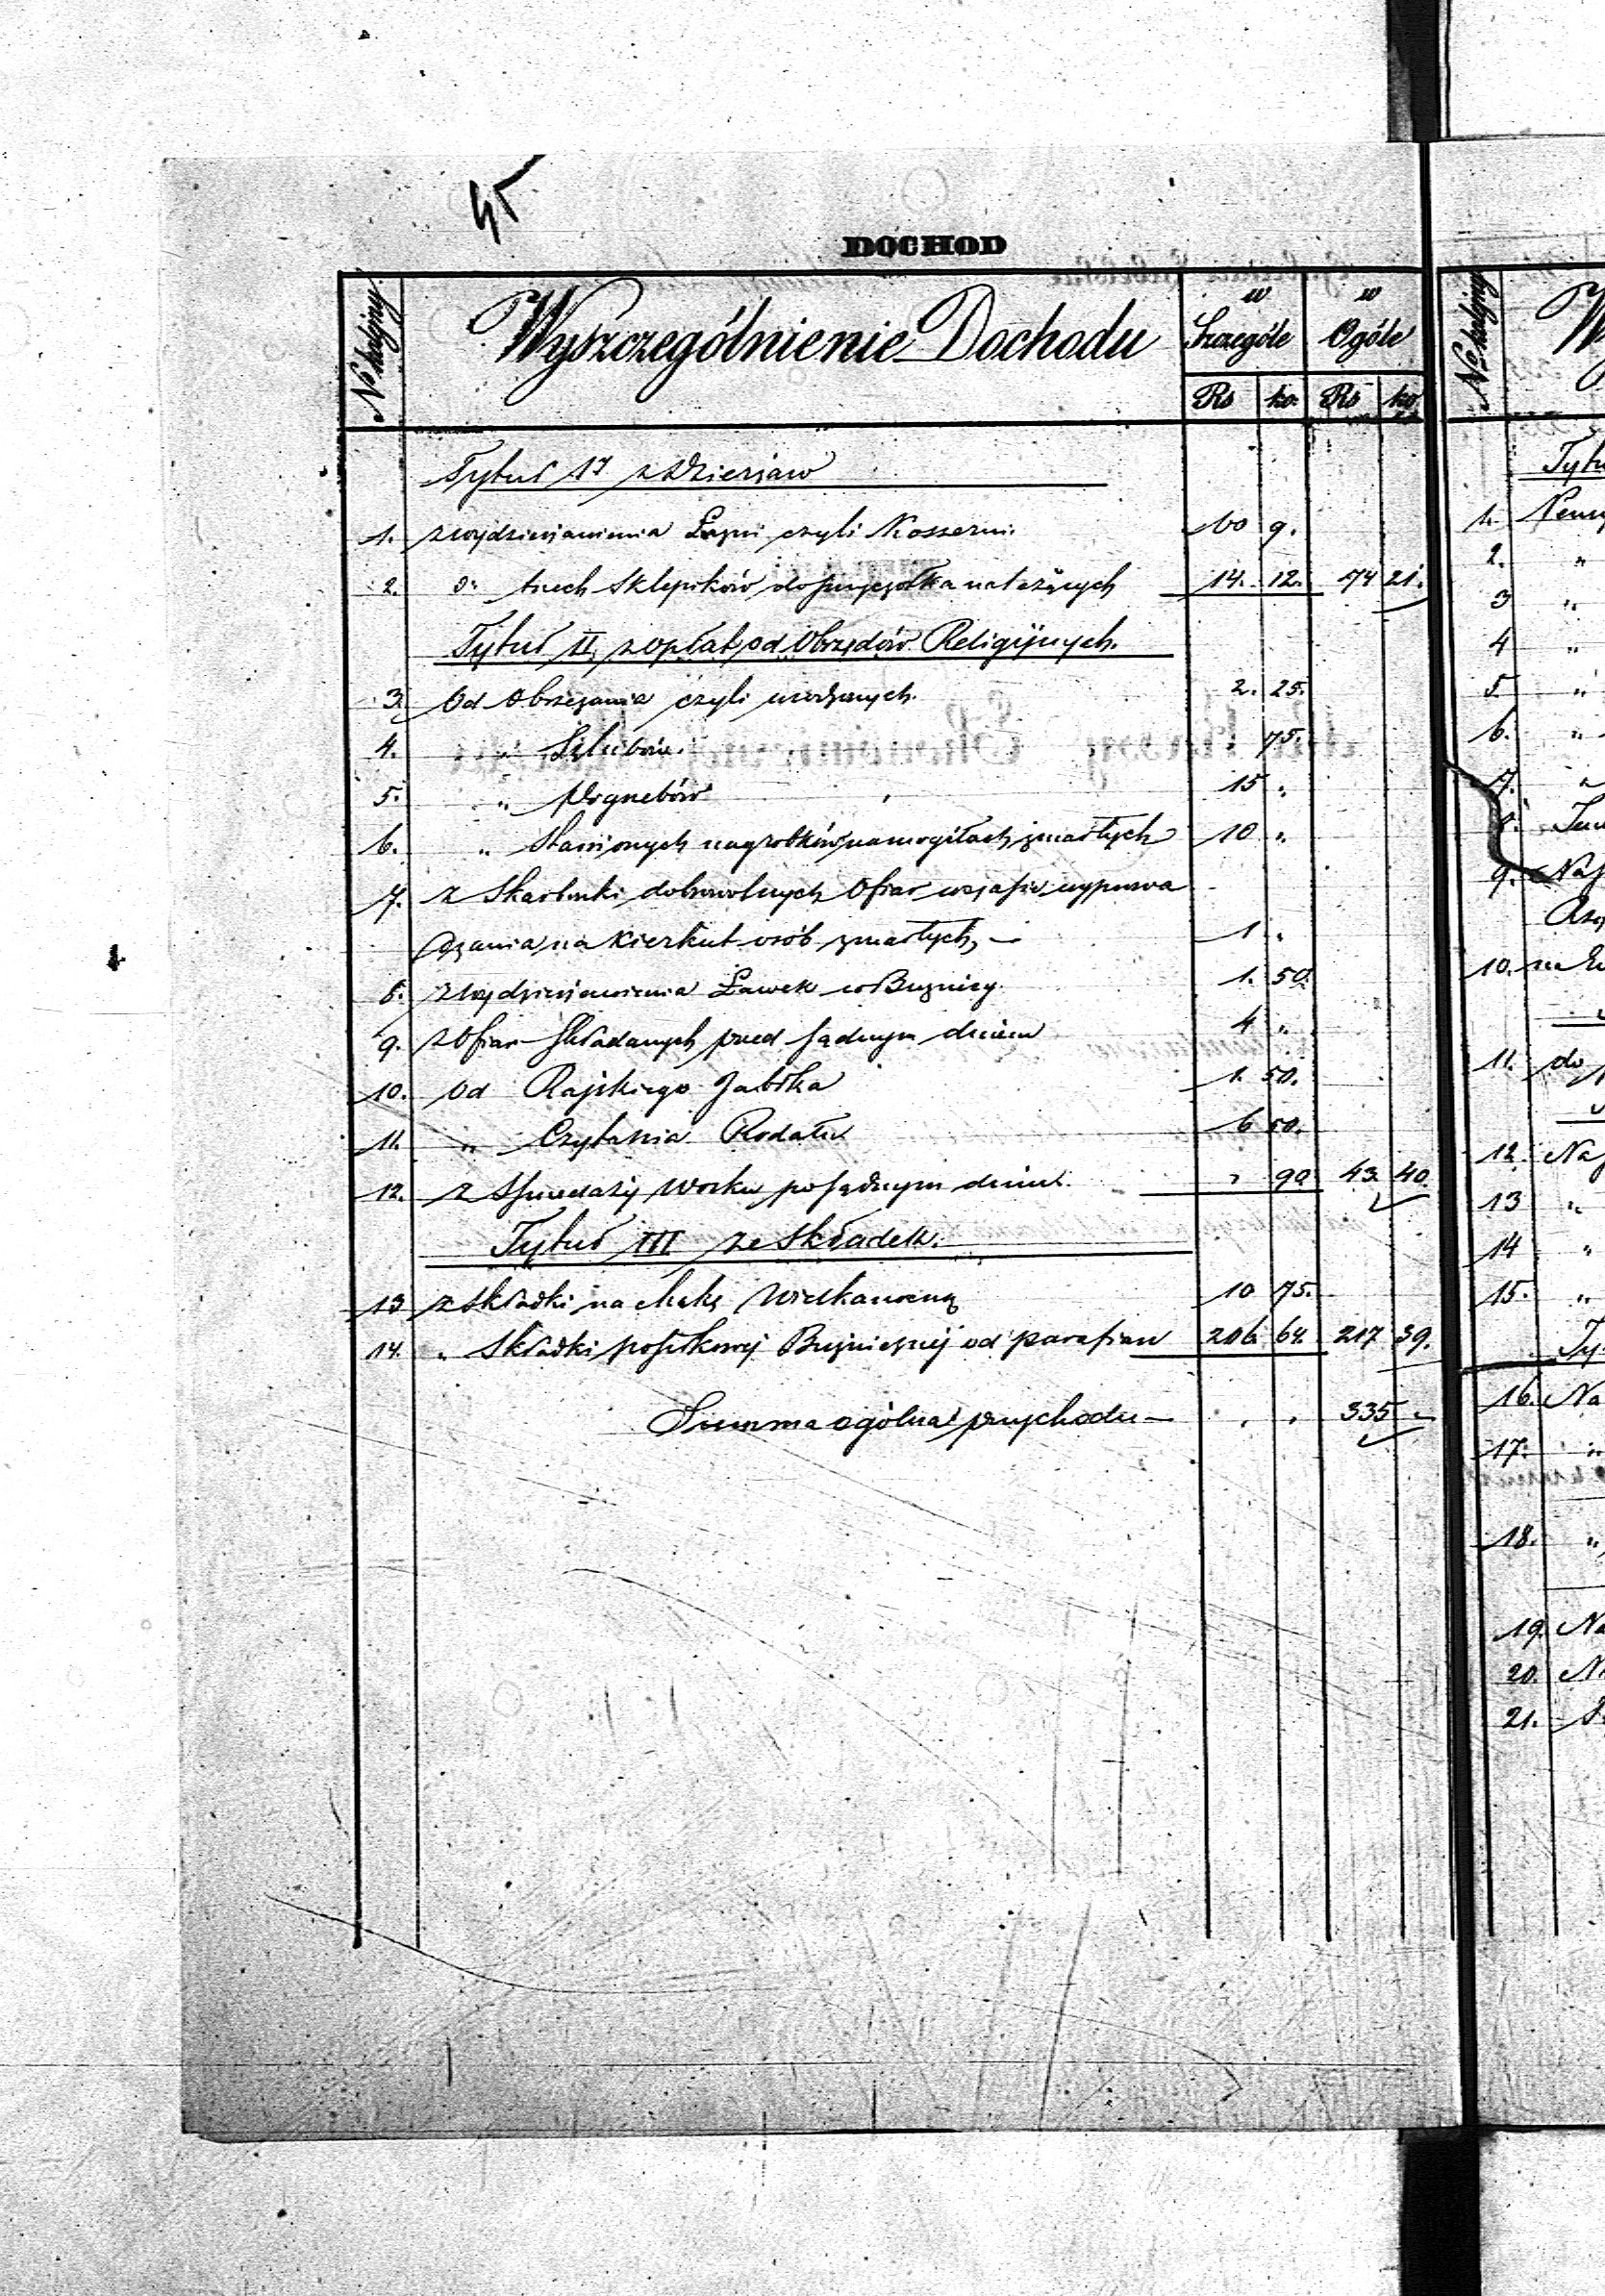 45
DOCHOD
№ kolejny
Wyszczególnienie Dochodu
w Szczególe
w Ogóle
Rs ko. Rs ko.
Tytuł I z Dzierżaw
1. z wydzierżawienia Łazni czyli Kosserni. 60 9.
2. trzech Sklepików do przyczołka należących 14. 12. 74 21.
Tytuł II, z opłat od Obrzędów Religijnych.
3. Od Obrzezania czyli urodzonych. 2. 25.
4. " Szlubów. " 75.
5. " Pogrzebów 15 "
6. " Stawionych nagrobków na mogiłach zmarłych 10 "
7. z Skarbonki dobrowolnych Ofiar w czasie wyprowa
dzania na Kierkut osób zmarłych, 1 "
8. z wydzierżawienia Ławek w Bużnicy. 1. 50.
9. z Ofiar składanych przed sądnym dniem 4 "
10. Od Rajskiego Jabłka 1. 50.
11. " Czytania Rodału 6 50.
12. z Sprzedaży Wosku po sądnym dniu. " 90 43. 40.
Tytuł III ze Składek.
13 z składki na Mąkę Wielkanocną 10 75.
14. " Składki posiłkowej Bużnicznéj od parafian 206. 64. 217 39.
Summa ogólna przychodu — " " 335 -
№ kolejny
W
Tytu
1.
2. "
3 "
4 "
5. "
6. "
7. "
8.
9. Na
10. na
11. do
12. Na
13 "
14 "
15. "
Ty
16. Na
17. "
18. "
19. Na
20. N
21.